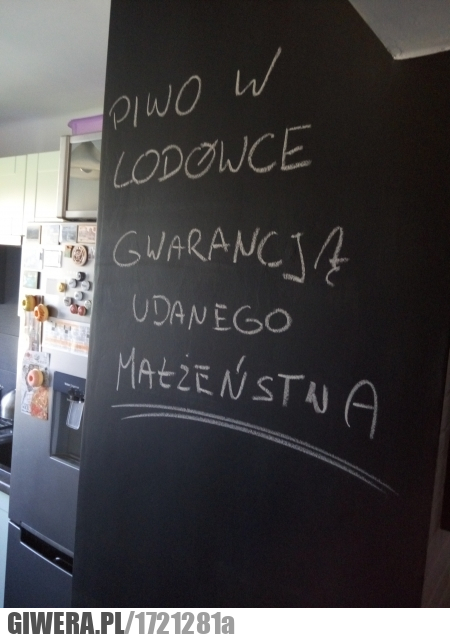 PIWO W
LODÓWCE
GWARANCJĄ
UDANEGO
MAŁŻEŃSTWA
GIWERA.PL/1721281a